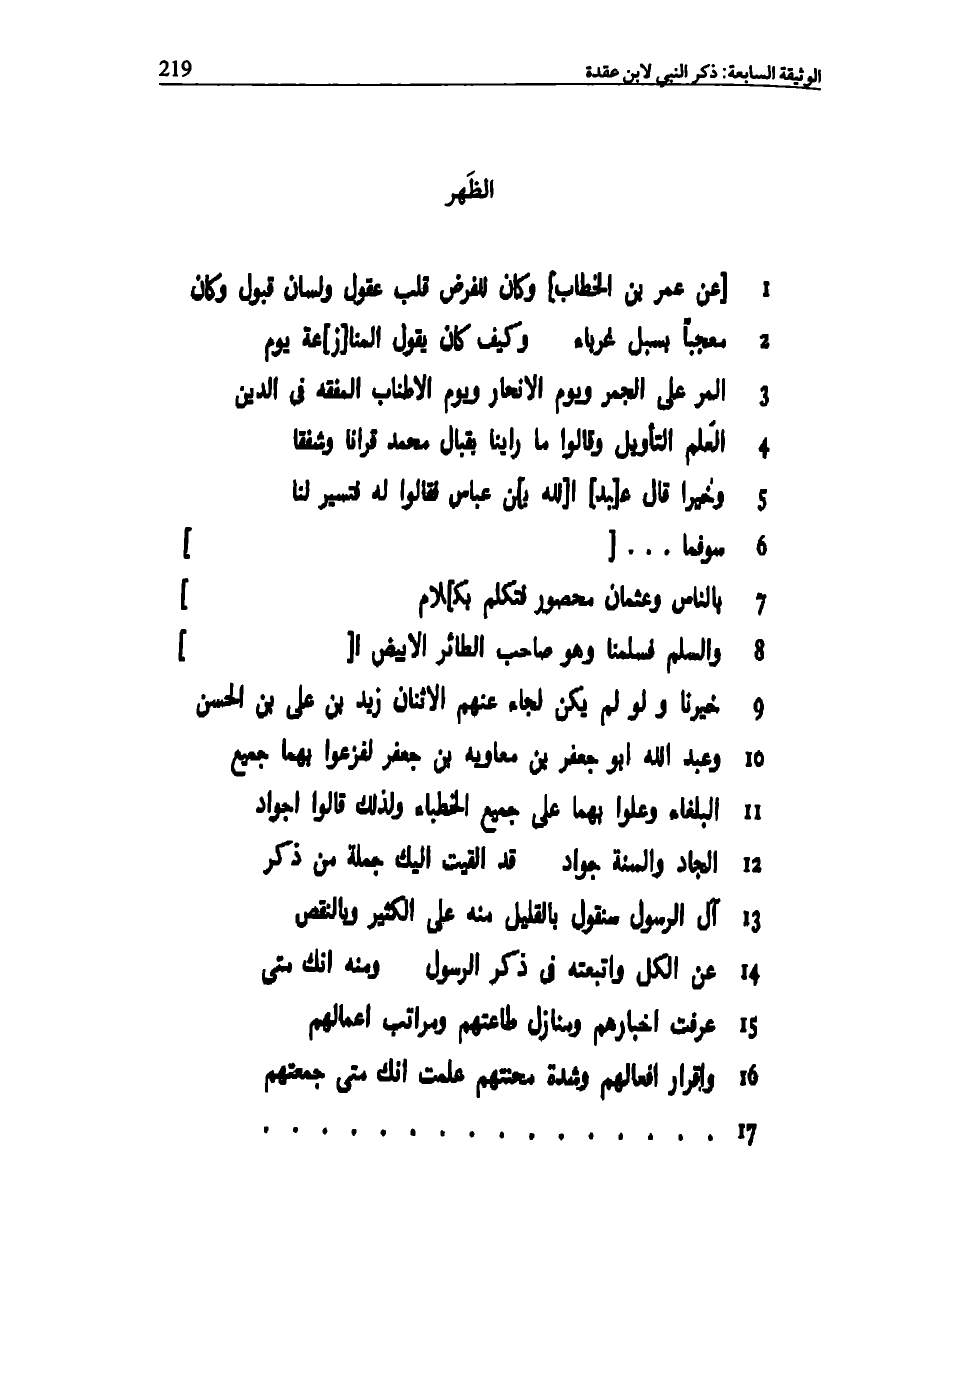 الوثيقة السابعة: ذكر النبي لابن عقدة 219
الظَهر
1 [عن عمر بن الخطاب] وكان للفرض قلب عقول ولسان قبول وكان
2 معجباً بسبل غرباء وكيف كان يقول المنا[ز]عة يوم
3 المر على الجمر ويوم الانحار ويوم الاطناب المفقه فى الدين
4 العُلم التأويل وقالوا ما راينا بقبال محمد قرانا وشفقا
5 وخُيرا قال ع[بد] ا[لله ب]ن عباس فقالوا له فتسير لنا
6 سوفما . . . [ ]
7 بالناس وعثمان محصور فتكلم بك[لام ]
8 والسلم فسلمنا وهو صاحب الطائر الابيض ا[ ]
9 خيرنا و لو لم يكن لجاء عنهم الاثنان زيد بن على بن الحسن
10 وعبد الله ابو جعفر بن معاويه بن جعفر لفزعوا بهما جميع
11 البلغاء وعلوا بهما على جميع الخطباء ولذلك قالوا اجواد
12 الجاد والسنة جواد قد القيت اليك جملة من ذكر
13 آل الرسول سنقول بالقليل منه على الكثير وبالنقص
14 عن الكل واتبعته فى ذكر الرسول ومنه انك متى
15 عرفت اخبارهم ومنازل طاعتهم ومراتب اعمالهم
16 وإقرار افعالهم وشدة محنتهم علمت انك متى جمعتهم
17 . . . . . . . . . . . . . . . .